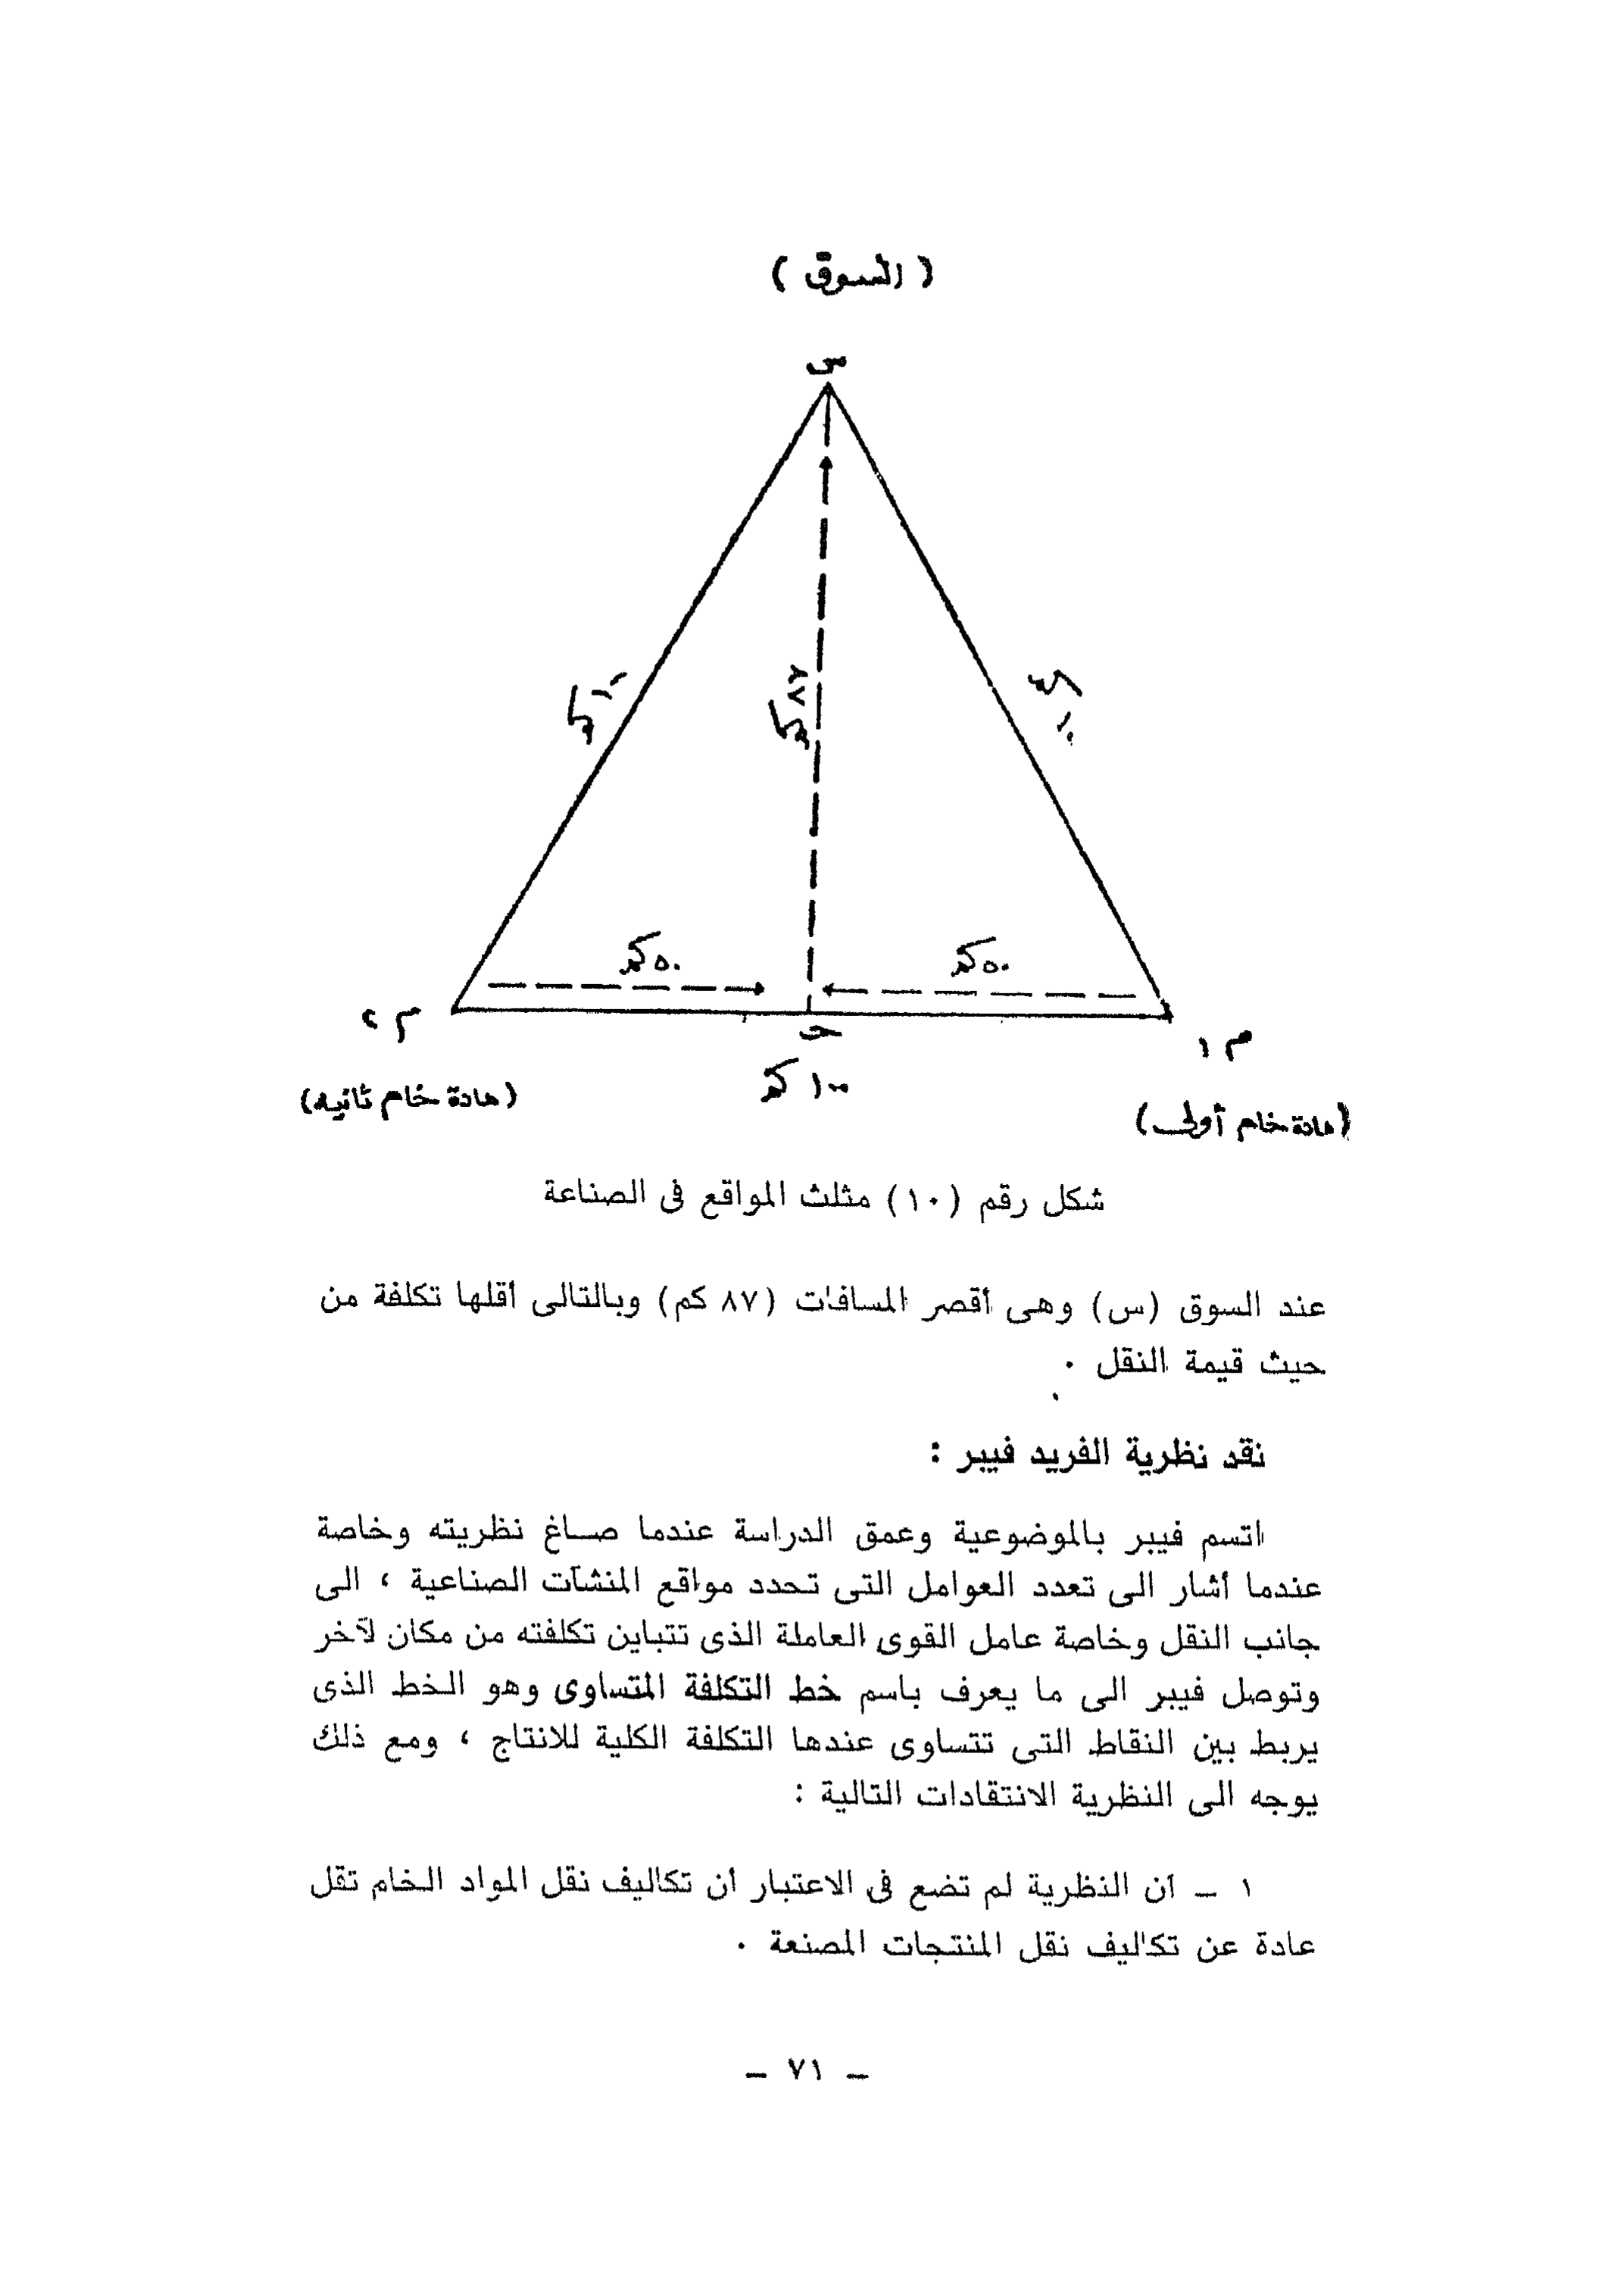 ( السوق )
س
١٠٠ كم
٨٧ كم
١٠٠ كم
٥٠ كم
٥٠ كم
م ٢
حـ
م ١
١٠٠ كم
(مادة خام ثانيه)
(مادة خام أولى)
شكل رقم (١٠) مثلث المواقع فى الصناعة
عند السوق (س) وهى أقصر المسافات (٨٧ كم) وبالتالى أقلها تكلفة من
حيث قيمة النقل ٠
نقد نظرية الفريد فيبر :
اتسم فيبر بالموضوعية وعمق الدراسة عندما صــاغ نظريته وخاصة
عندما أشار الى تعدد العوامل التى تحدد مواقع المنشآت الصناعية ، الى
جانب النقل وخاصة عامل القوى العاملة الذى تتباين تكلفته من مكان لآخر
وتوصل فيبر الى ما يعرف باسم خط التكلفة المتساوى وهو الخط الذى
يربط بين النقاط التى تتساوى عندها التكلفة الكلية للانتاج ، ومع ذلك
يوجه الى النظرية الانتقادات التالية :
١ – أن النظرية لم تضع فى الاعتبار أن تكاليف نقل المواد الخام تقل
عادة عن تكاليف نقل المنتجات المصنعة ٠
– ٧١ –